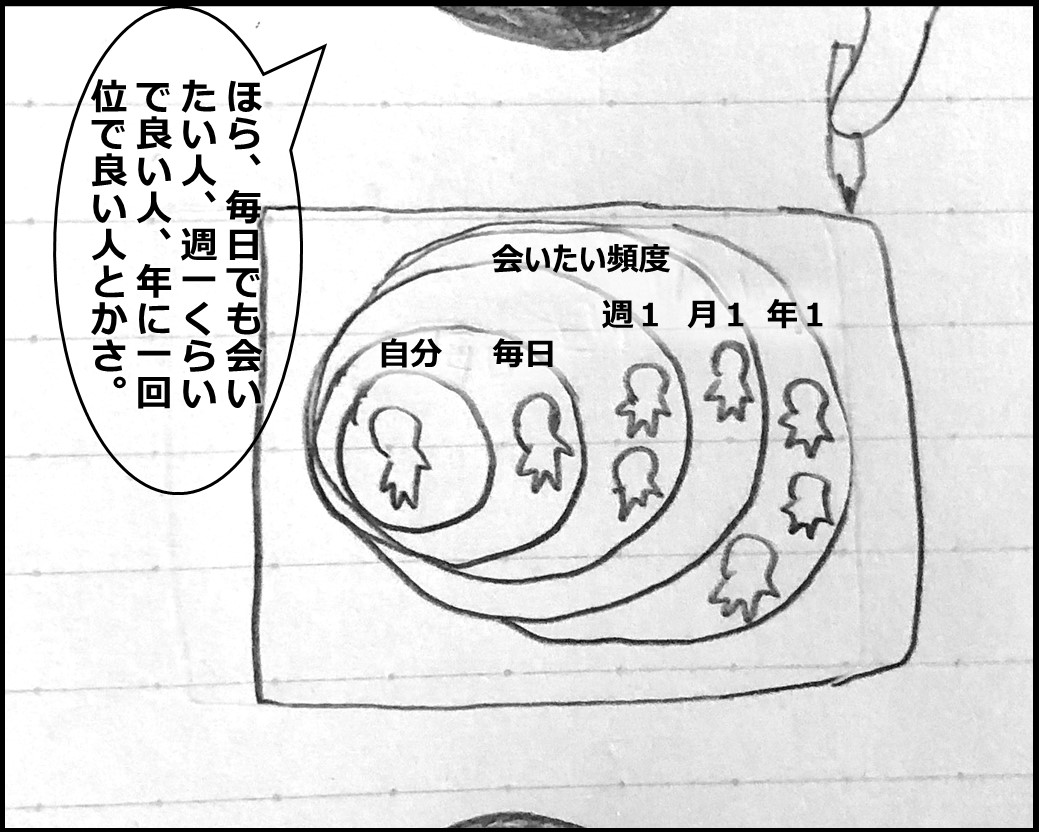 ほら、毎日でも会い
たい人、週一くらい
で良い人、年に一回
位で良い人とかさ。
会いたい頻度
週１ 月１ 年１
自分 毎日